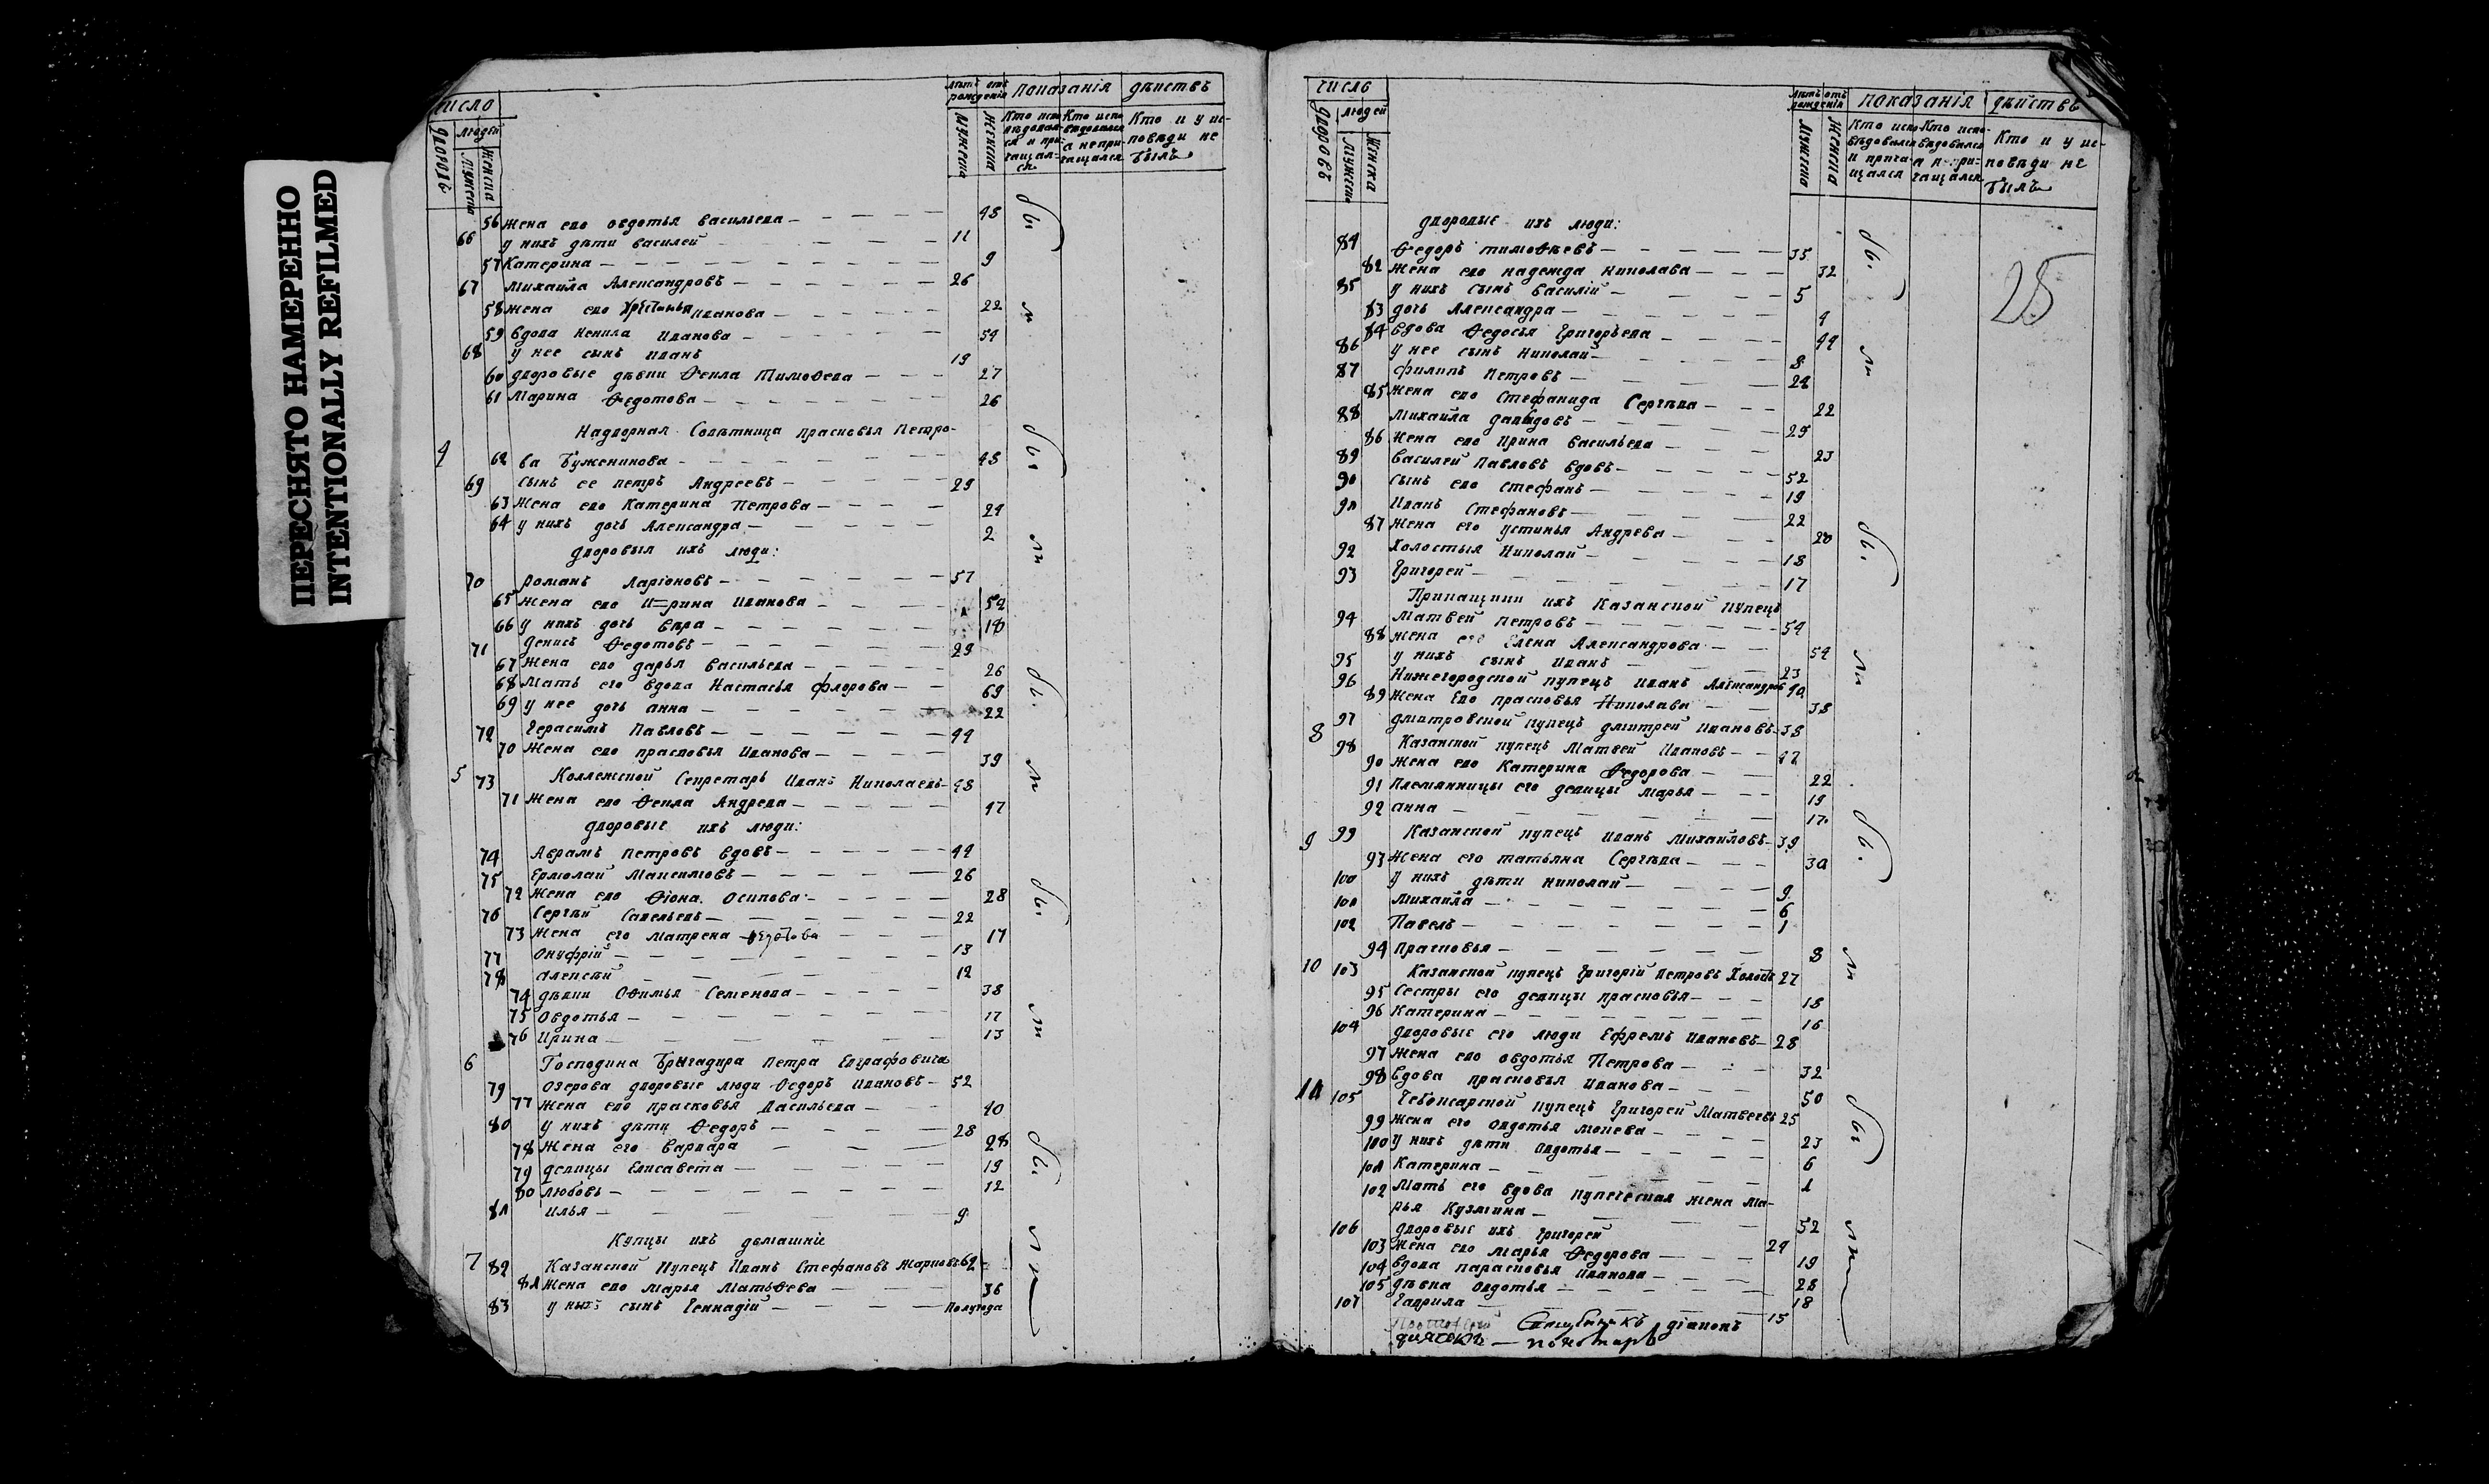 ПЕРЕСНЯТО НАМЕРЕННО
INTENTIONALLY REFILMED
число
лѣтъ отъ рожденія
показанія дѣйствъ
дворовъ
людей
мужеска
женска
мужеска
женска
Кто исповѣдовался и причащался
Кто исповѣдовался а непричащался
Кто и у исповѣди не былъ
56 Жена ево овдотья васильева 45
66 у нихъ дѣти василей 11
57 Катерина 9
67 Михайла Александровъ 26
58 Жена ево Христинья иванова 22
59 вдова Ненила иванова 54
68 у нее сынъ иванъ 19
60 дворовые дѣвки Ѳекла Тимоѳева 27
61 Марина Ѳедотова 26
Надворная Совѣтница прасковья Петро-
4 62 ва Буженинова 45
69 сынъ ее петръ Андреевъ 29
63 Жена ево Катерина Петрова 24
64 у нихъ дочь Александра 2
дворовыя ихъ люди:
70 романъ Ларіоновъ 57
65 жена ево Ирина Иванова 52
66 у нихъ дочь вѣра 18
71 денисъ Ѳедотовъ 29
67 Жена ево дарья васильева 26
68 Мать его вдова Настасья флорова 69
69 у нее дочь анна 22
72 Герасимъ Павловъ 44
70 Жена ево прасковья Иванова 39
5 73 Коллежской Секретарь Иванъ Николаевъ 48
71 Жена ево Ѳекла Андрева 47
дворовые ихъ люди:
74 Аврамъ петровъ вдовъ 44
75 Ермолай Максимовъ 26
72 Жена ево Ѳіона Осипова 28
76 Сергѣй Савельевъ 22
73 Жена его матрена Ѳедотова 17
77 Онуфрій 13
78 алексѣй 12
74 дѣвки Оѳимья Семенова 38
75 Овдотья 17
76 Ирина 13
6 Господина Брыгадира петра Евграфовича
79 Озерова дворовые люди Ѳедоръ ивановъ 52
77 Жена ево прасковья Васильева 40
80 у нихъ дѣти Ѳедоръ 28
78 Жена его варвара 28
79 девицы Елисавета 19
80 любовь 12
81 илья 9
Купцы ихъ домашніе
7 82 Казанской Купецъ Иванъ Стефановъ Жарковъ 62
81 Жена ево марья Матьѳева 36
83 у нихъ сынъ Геннадій полугода
бы ли
бы ли
бы ли
бы ли
бы ли
число
лѣтъ отъ рожденія
показанія дѣйствъ
дворовъ
людей
мужеска
женска
мужеска
женска
Кто исповѣдовался и причащался
Кто исповѣдовался а непричащался
Кто и у исповѣди не былъ
25
дворовые ихъ люди:
84 Ѳедоръ тимоѳѣевъ 35
82 Жена ево надежда Николава 32
85 у нихъ сынъ василій 5
83 дочь Александра 4
84 вдова Ѳедосья Григорьева 44
86 у нее сынъ Николай 8
87 филипъ Петровъ 24
85 Жена ево Стефанида Сергѣва 22
88 Михайла давыдовъ 25
86 Жена ево Ирина васильева 23
89 василей Павловъ вдовъ 52
90 сынъ ево стефанъ 19
91 Иванъ Стефановъ 22
87 Жена его устинья Андрева 20
92 Холостыя Николай 18
93 Григорей 17
Прикащики ихъ Казанской купецъ
94 Матвей петровъ 54
88 жена его Елена Александрова 54
95 у нихъ сынъ иванъ 23
96 Нижегородской купецъ иванъ Александровъ 40
89 Жена Ево прасковья Николава 38
8 97 дмитровской купецъ дмитрей ивановъ 38
98 Казанской купецъ Матвей Ивановъ 47
90 Жена ево Катерина Ѳедорова 22
91 Племянницы его девицы марья 19
92 анна 17
9 99 Казанской купецъ иванъ Михайловъ 39
93 Жена его татьяна Сергѣва 30
100 У нихъ дѣти николай 9
101 Михайла 6
102 Павелъ 1
94 прасковья 8
10 103 Казанской купецъ Григорій петровъ Холостъ 27
95 Сестры его девицы прасковья 18
96 Катерина 16
104 дворовые его люди Ефремъ ивановъ 28
97 Жена ево овдотья Петрова 32
98 вдова прасковья иванова 50
11 105 Чебоксарской купецъ Григорей Матвеевъ 25
99 Жена его овдотья мокева 23
100 у нихъ дѣти овдотья 6
101 Катерина 1
102 Мать его вдова купеческая жена Ма-
рья Кузмина 52
106 дворовые ихъ Григорей 24
103 Жена ево Марья Ѳедорова 19
104 вдова парасковья иванова 28
105 дѣвка овдотья 18
107 Гаврила 15
бы ли
бы ли
бы ли
бы ли
діаконъ
дьячокъ — пономарь